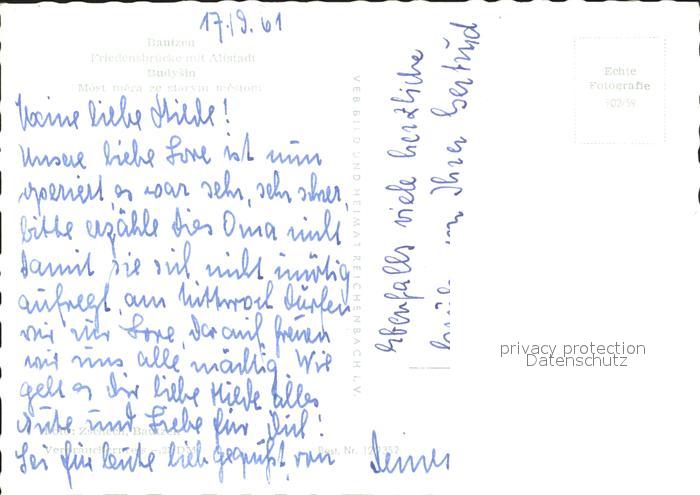 17./9. 61
Bautzen
Friedensbrücke mit Altstadt
Budyšin
Móst měra ze starym městom
Meine liebe Hilde!
Unsere liebe Lore ist nun
operiert, es war sehr, sehr schwer,
bitte erzähle dies Oma nicht
damit sie sich nicht unnötig
aufregt, am Mittwoch dürfen
wir zur Lore, darauf freuen
wir uns alle mächtig. Wie
geht es Dir liebe Hilde alles
Gute und Liebe für Dich!
Sei für heute lieb gegrüßt von
Deiner
Ebenfalls viele herzliche
Grüße von Ihrer Gertrud
VEB BILD UND HEIMAT REICHENBACH I. V.
Echte
Fotografie
102/59
Bautzen
Best. Nr.
privacy protection
Datenschutz